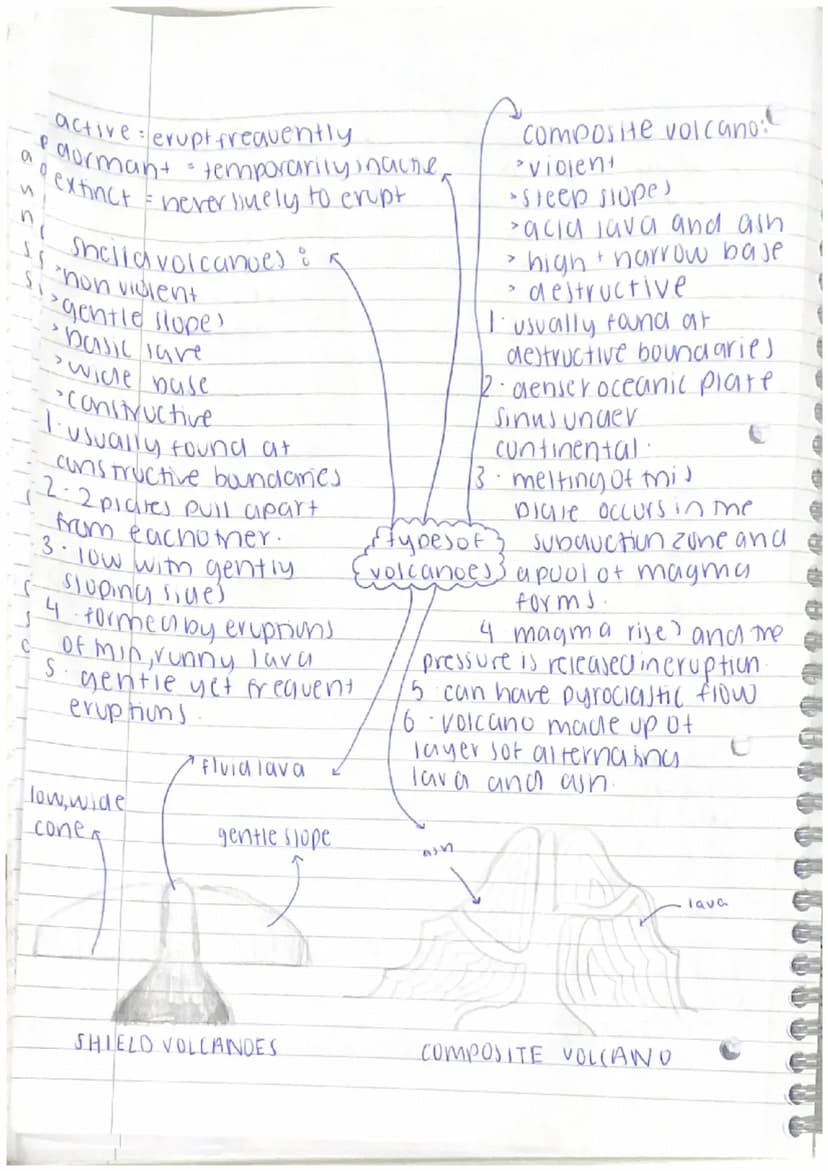 active = erupt frequently
dormant = temporarily inactive
extinct = never likely to erupt
shield volcanoes :
> non violent
> gentle slopes
> basic lava
> wide base
> constructive
1. usually found at
constructive boundaries
2. 2 plates pull apart
from eachother.
3. low with gently
sloping sides
4. formed by eruptions
of thin, runny lava
5. gentle yet frequent
eruptions.
composite volcano:
> violent
> steep slopes
> acid lava and ash
> high + narrow base
> destructive
1. usually found at
destructive boundaries
2. denser oceanic plate
sinks under
continental.
3. melting of this
plate occurs in the
subduction zone and
a pool of magma
forms.
4 magma rises and the
pressure is released in eruption.
5 can have pyroclastic flow
6. volcano made up of
layers of alternating
lava and ash.
types of
volcanoes
fluid lava
low, wide
cone
gentle slope
SHIELD VOLCANOES
ash
lava
COMPOSITE VOLCANO